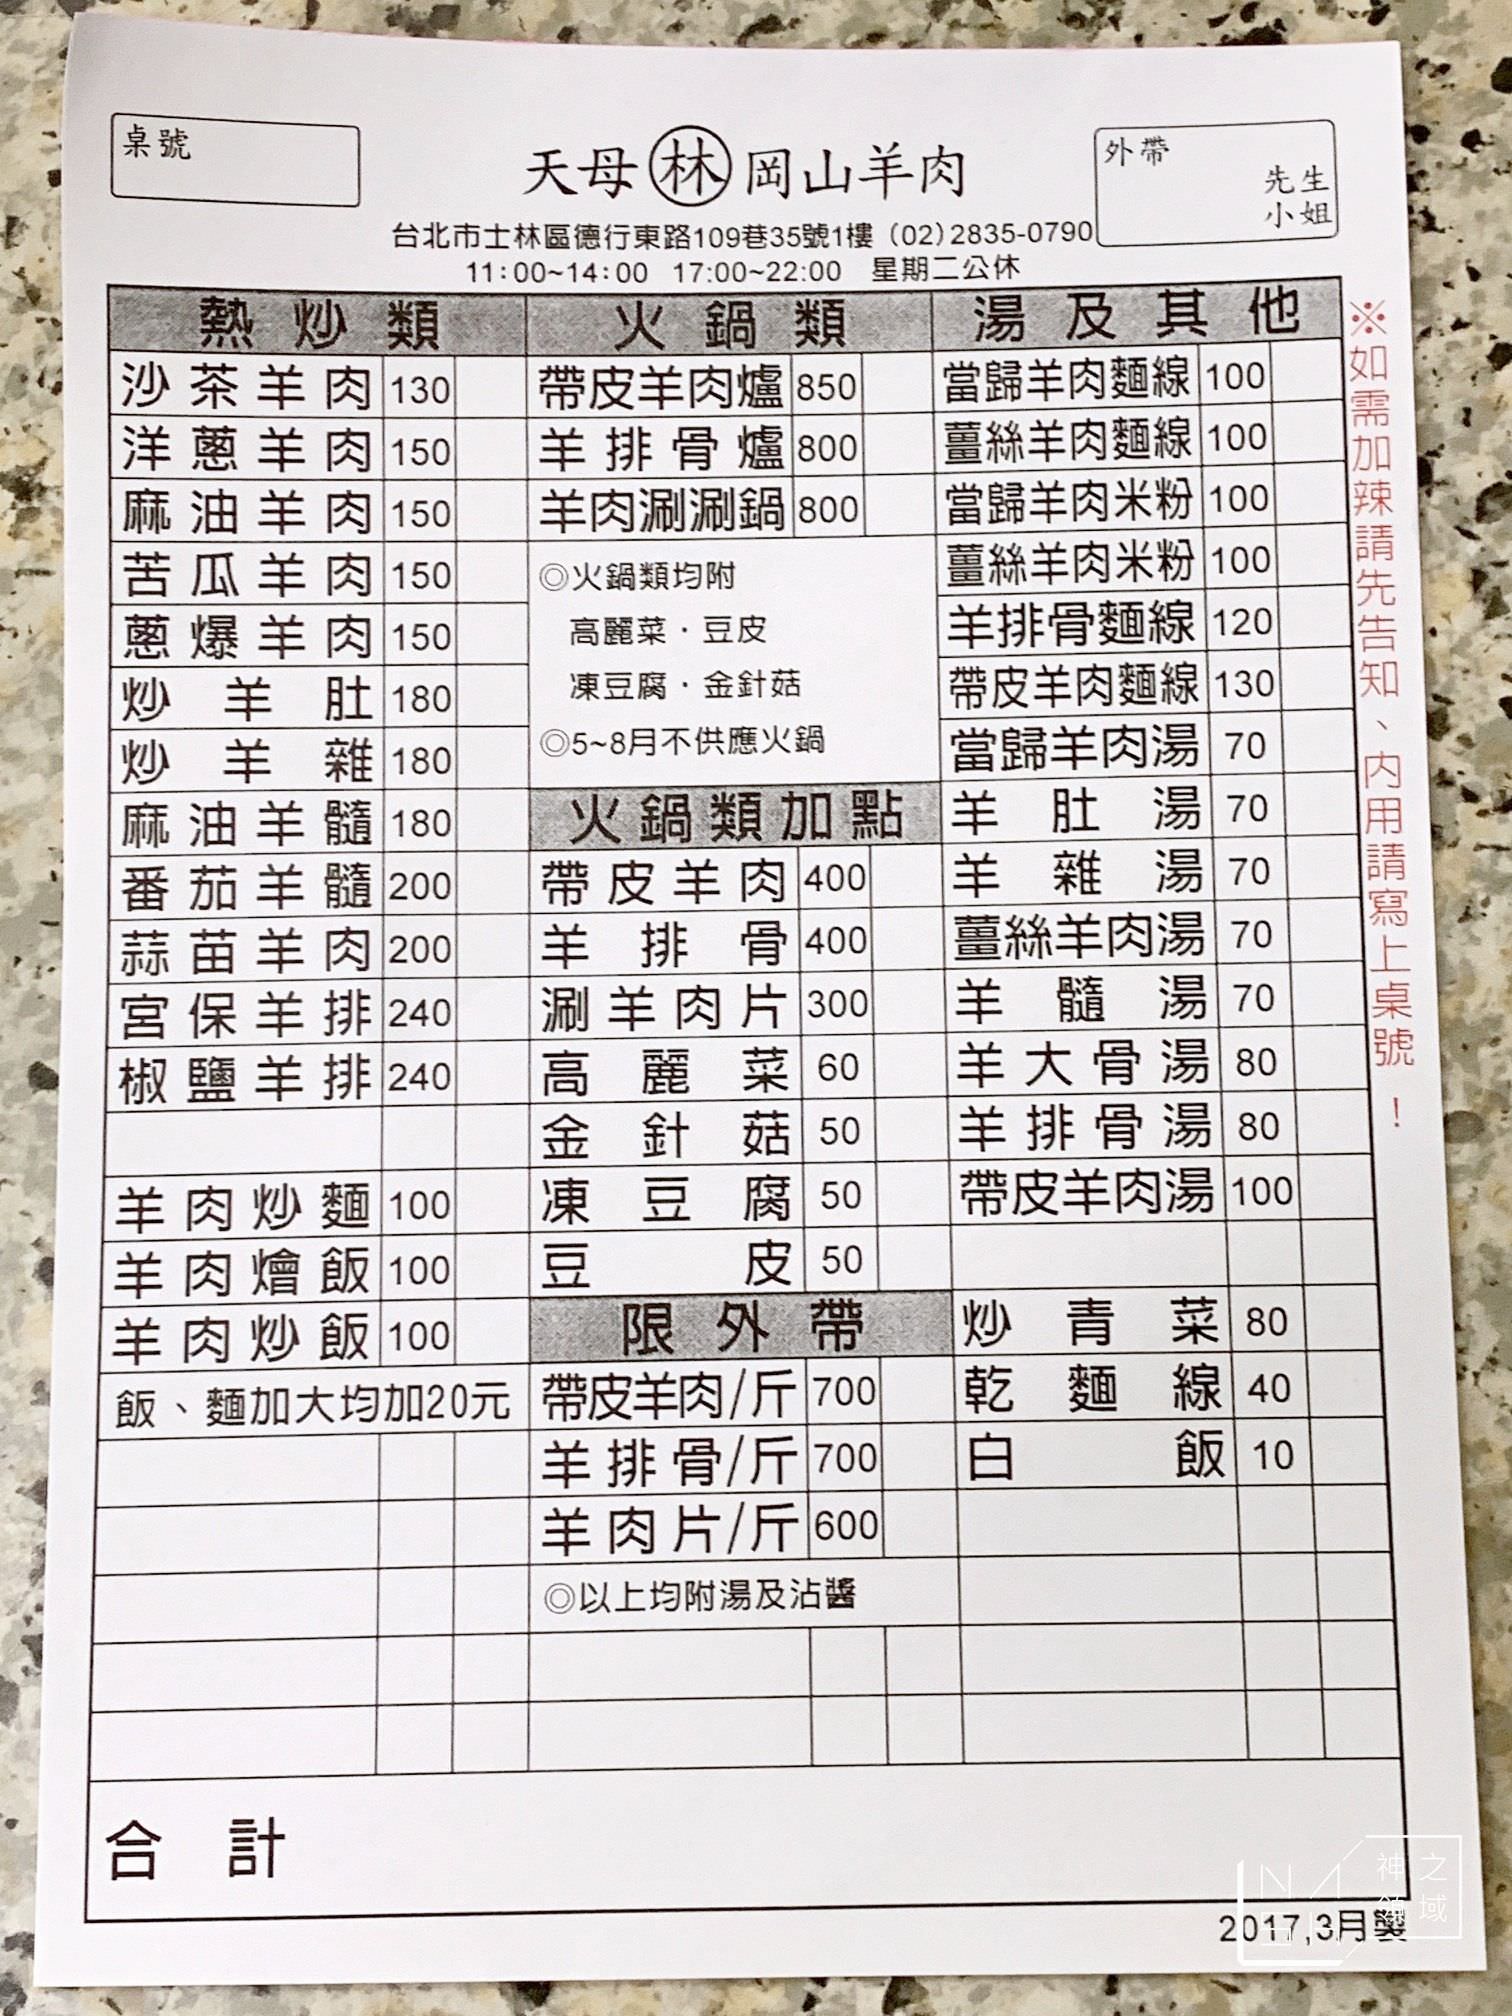 桌號
天母林岡山羊肉
外帶
先生
小姐
台北市士林區德行東路109巷35號1樓 (02)2835-0790
11:00~14:00 17:00~22:00 星期二公休
熱炒類
沙茶羊肉 130
洋蔥羊肉 150
麻油羊肉 150
苦瓜羊肉 150
蔥爆羊肉 150
炒羊肚 180
炒羊雜 180
麻油羊髓 180
番茄羊髓 200
蒜苗羊肉 200
宮保羊排 240
椒鹽羊排 240
羊肉炒麵 100
羊肉燴飯 100
羊肉炒飯 100
飯、麵加大均加20元
火鍋類
帶皮羊肉爐 850
羊排骨爐 800
羊肉涮涮鍋 800
◎火鍋類均附
高麗菜·豆皮
凍豆腐·金針菇
◎5~8月不供應火鍋
火鍋類加點
帶皮羊肉 400
羊排骨 400
涮羊肉片 300
高麗菜 60
金針菇 50
凍豆腐 50
豆皮 50
限外帶
帶皮羊肉/斤 700
羊排骨/斤 700
羊肉片/斤 600
◎以上均附湯及沾醬
湯及其他
當歸羊肉麵線 100
薑絲羊肉麵線 100
當歸羊肉米粉 100
薑絲羊肉米粉 100
羊排骨麵線 120
帶皮羊肉麵線 130
當歸羊肉湯 70
羊肚湯 70
羊雜湯 70
薑絲羊肉湯 70
羊髓湯 70
羊大骨湯 80
羊排骨湯 80
帶皮羊肉湯 100
炒青菜 80
乾麵線 40
白飯 10
※如需加辣請先告知、內用請寫上桌號！
合計
2017,3月製
神之領域
NASH